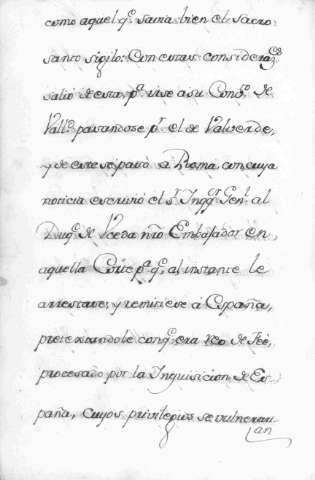 como aquel q.e savia bien el sacro-
santo sigilo: Con estas consideraz.es
salió de esta p.a irse a su Conv.to de
Vall.d pasandose p.r el de Valverde,
y de este se pasó a Roma, con cuya
noticia escrivió el S.r Inqq.r Gen.l al
Duq.e de Uceda nrõ Embajador en
aquella Corte p.a q.e al instante le
arrestase, y remitiese a España,
pretextandole con q.e era reo de Feé,
procesado por la Inquisicion de Es-
paña, cuyos privilegios se vulneraui
an